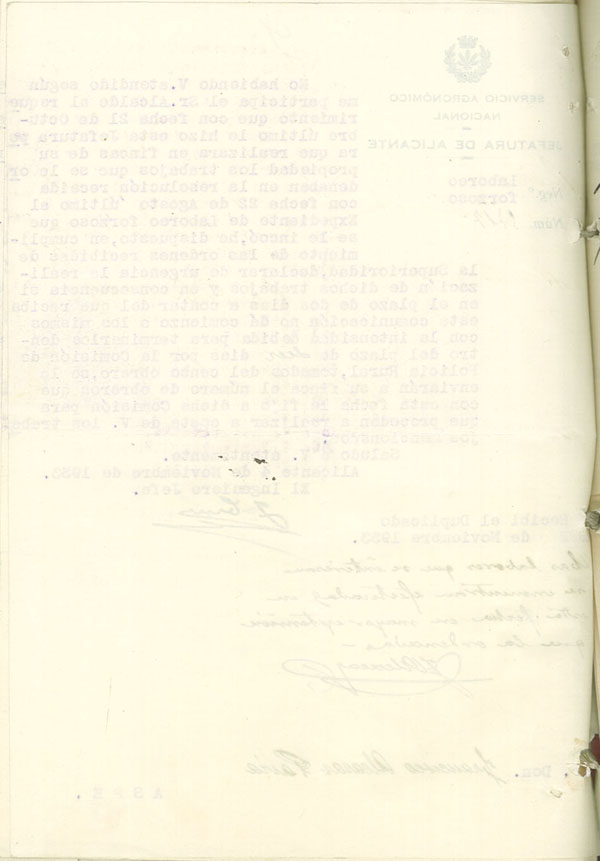 SERVICIO AGRONÓMICO
NACIONAL
JEFATURA DE ALICANTE
Neg.º laboreo
forzoso.
Núm.
No habiendo V. atendido según
me participa el Sr.Alcalde al reque
rimiento que con fecha 21 de Octu-
bre último le hizo esta Jefatura pa
ra que realizara en fincas de su
propiedad los trabajos que se le or
denaban en la resolución recaida
con fecha 22 de Agosto último al
Expediente de Laboreo forzoso que
se le incoó,he dispuesto,en cumpli-
miento de las órdenes recibidas de
la Superioridad,declarar de urgencia la reali-
zación de dichos trabajos y en consecuencia si
en el plazo de dos dias a contar del que reciba
esta comunicación no dá comienzo a los mismos
con la intensidad debida para terminarlos den-
tro del plazo de diez dias por la Comisión de
Policia Rural,tomados del censo obrero,se le
enviarán a su finca el número de obreros que
con esta fecha le fijo a dicha Comisión para
que procedan a realizar a costa de V. los traba
jos mencionados.
Saludo a V. atentamente.
Alicante 4 de Noviembre de 1933.
El Ingeniero Jefe.
Recibí el Duplicado
de Noviembre 1933.
Las labores que se interesan
se encuentran efectuadas en
esta fecha en mayor extensión
que la ordenada.-
. Don. Francisco Alenda
A S P E .